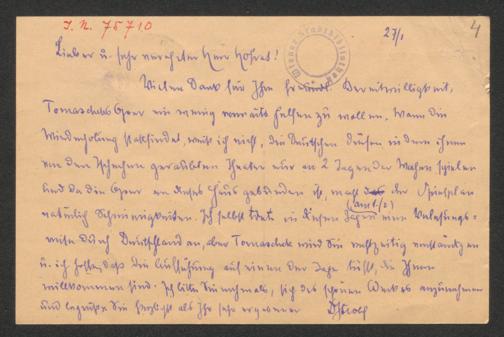 I. N. 75710
27/1
4
Lieber u. sehr verehrter Herr Hofrat!
Vielen Dank für Ihre freundl. Bereitwilligkeit,
Tomascheks Oper ein wenig vorwärts helfen zu wollen. Wann die
Wiederholung stattfindet, weiß ich nicht, die Deutschen dürfen in dem ihnen
von den Tschechen geraubten Theater nur an 2 Tagen der Woche spielen
und da die Oper an dieses Haus gebunden ist, macht der Spielplan
natürlich Schwierigkeiten. Ich selbst trete in diesen Tagen eine Vorlesungs-
reise durch Deutschland an, aber Tomaschek wird Sie rechtzeitig verständigen
u. ich hoffe, daß die Aufführung auf einen der Tage trifft, die Ihnen
willkommen sind. Ich bitte Sie nochmals, sich des schönen Werkes anzunehmen
und begrüße Sie herzlichst als Ihr sehr ergebener